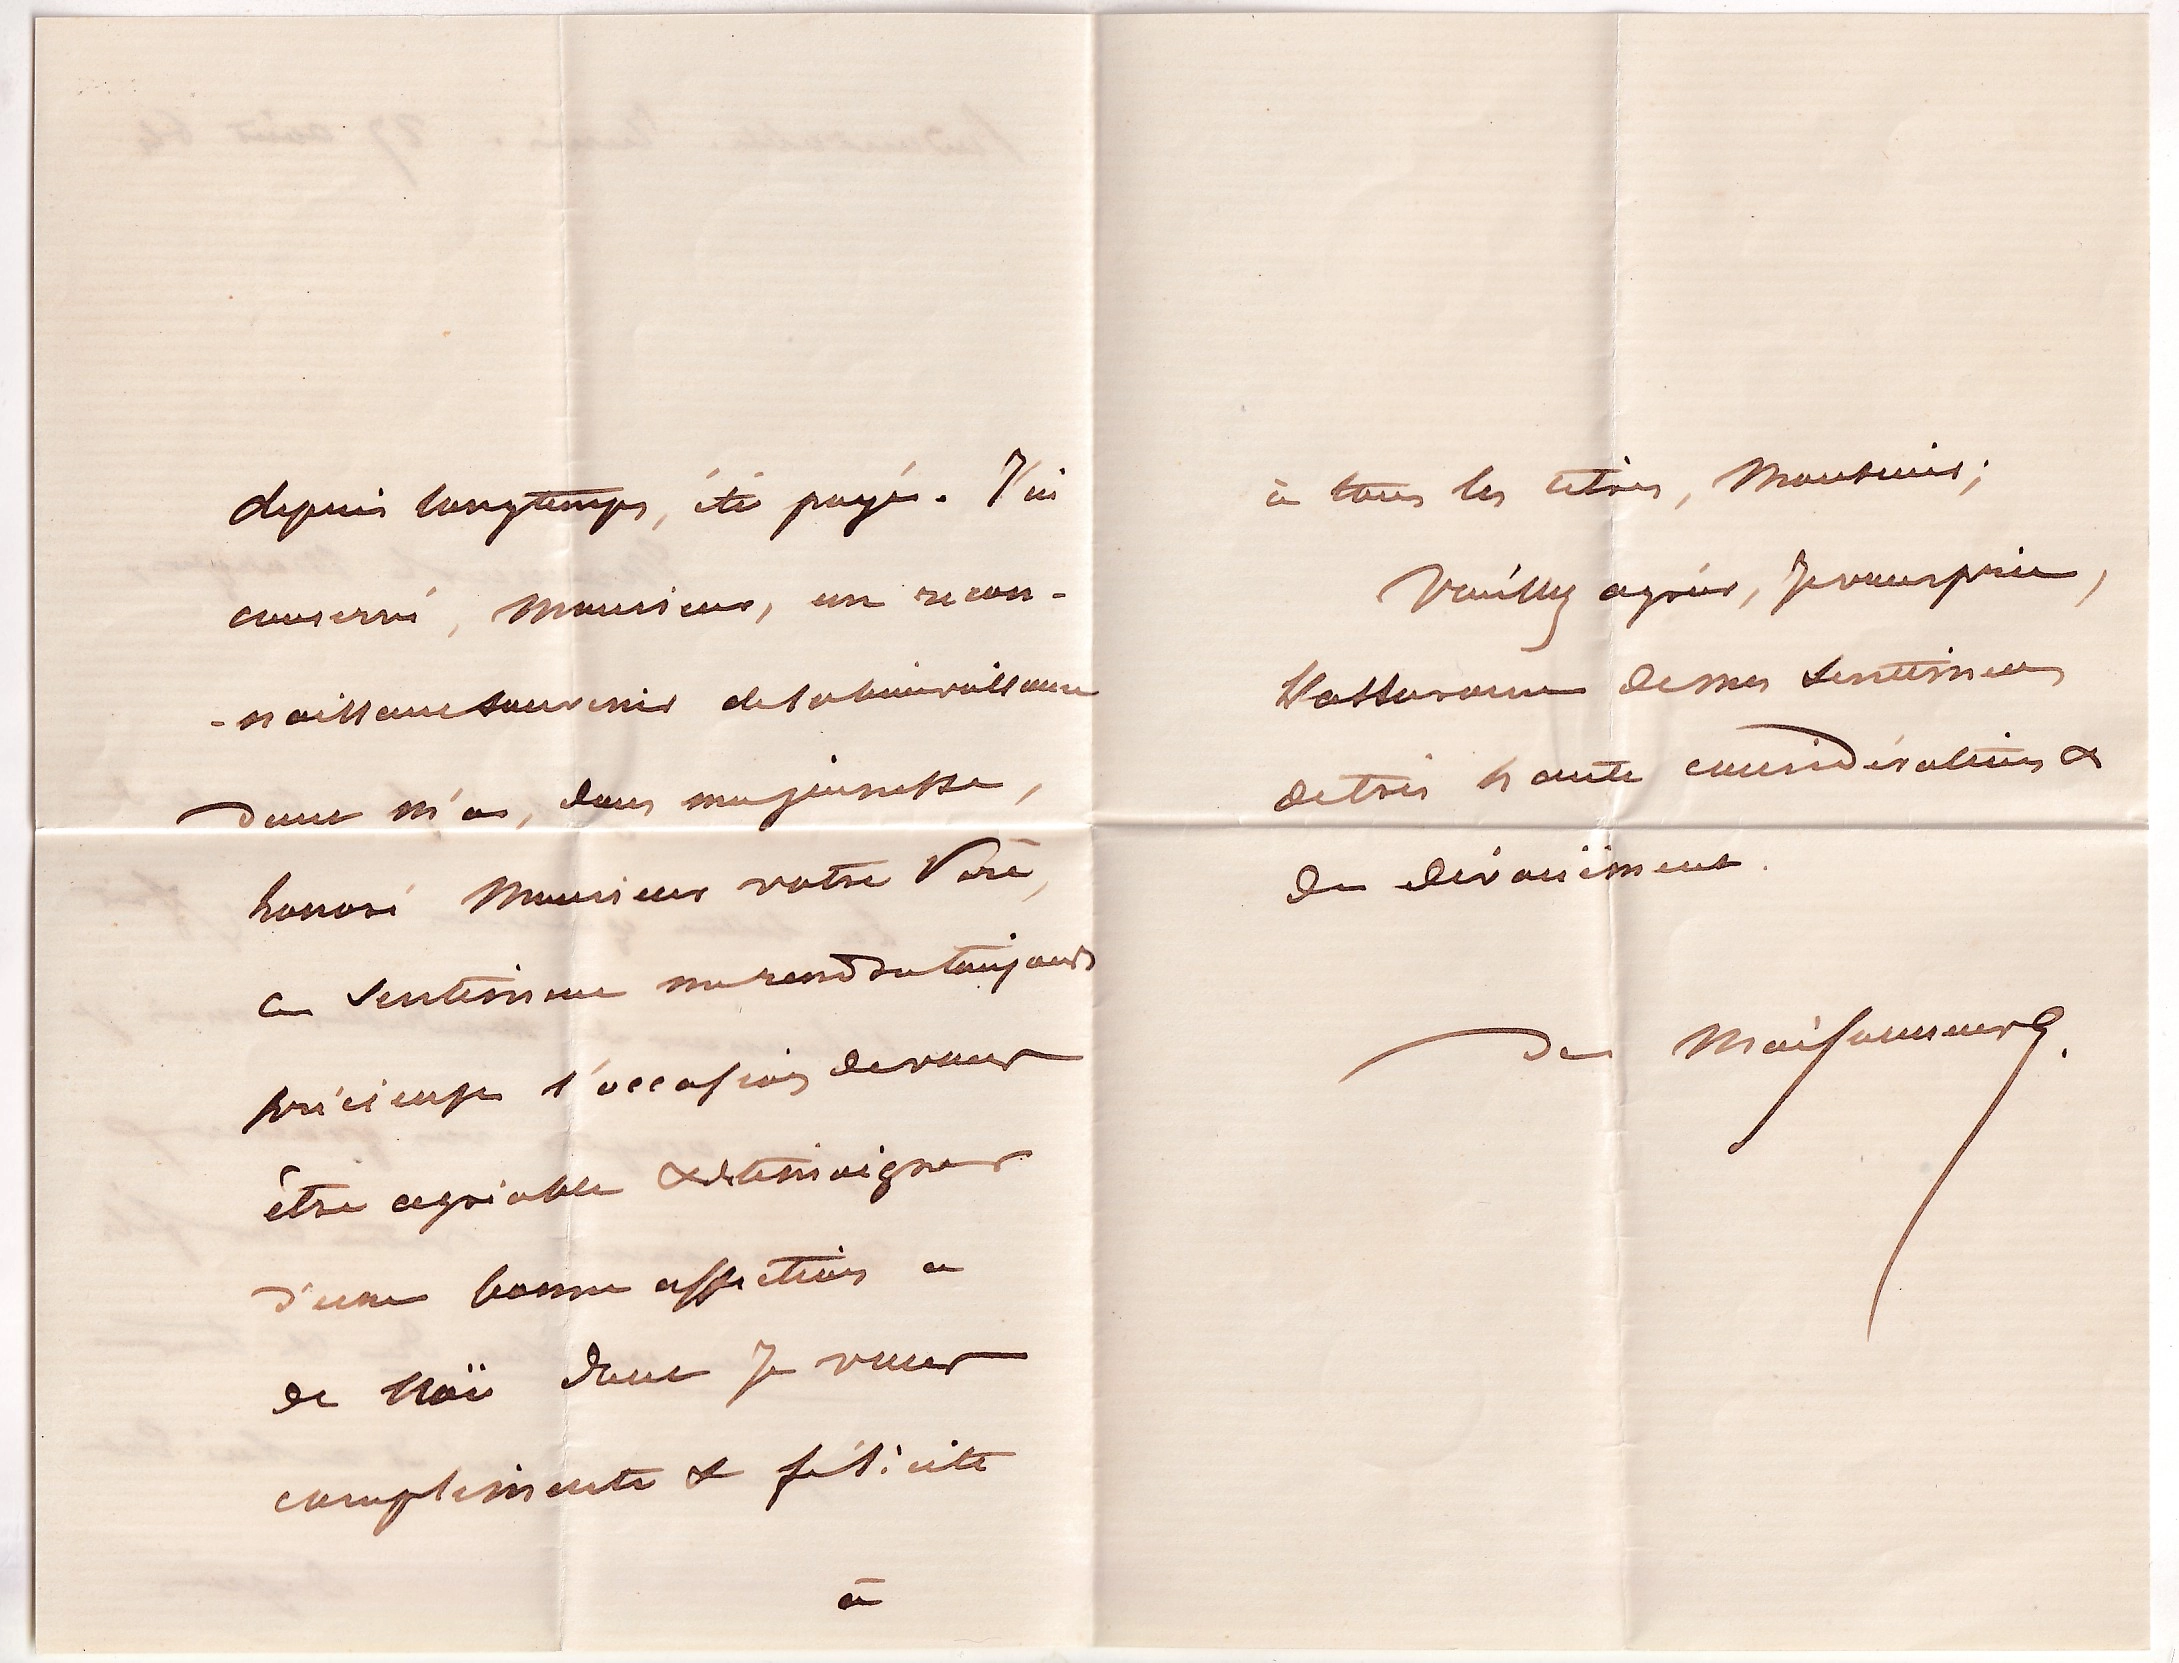 depuis longtemps, été payée. J'ai
conservé, Monsieur, un recon-
-naissant souvenir de la bienveillance
dont m'a, dans ma jeunesse,
honoré Monsieur votre Père,
ce sentiment me rendra toujours
précieuse l'occasion de vous
être agréable & de témoigner
d'une bonne affection a
de dont Je vous
complimente & félicite
à
à tous les titres, Monsieur;
Veuillez agréer, Je vous prie,
l'assurance de mes sentiments
de très haute considération &
de dévouement.
de